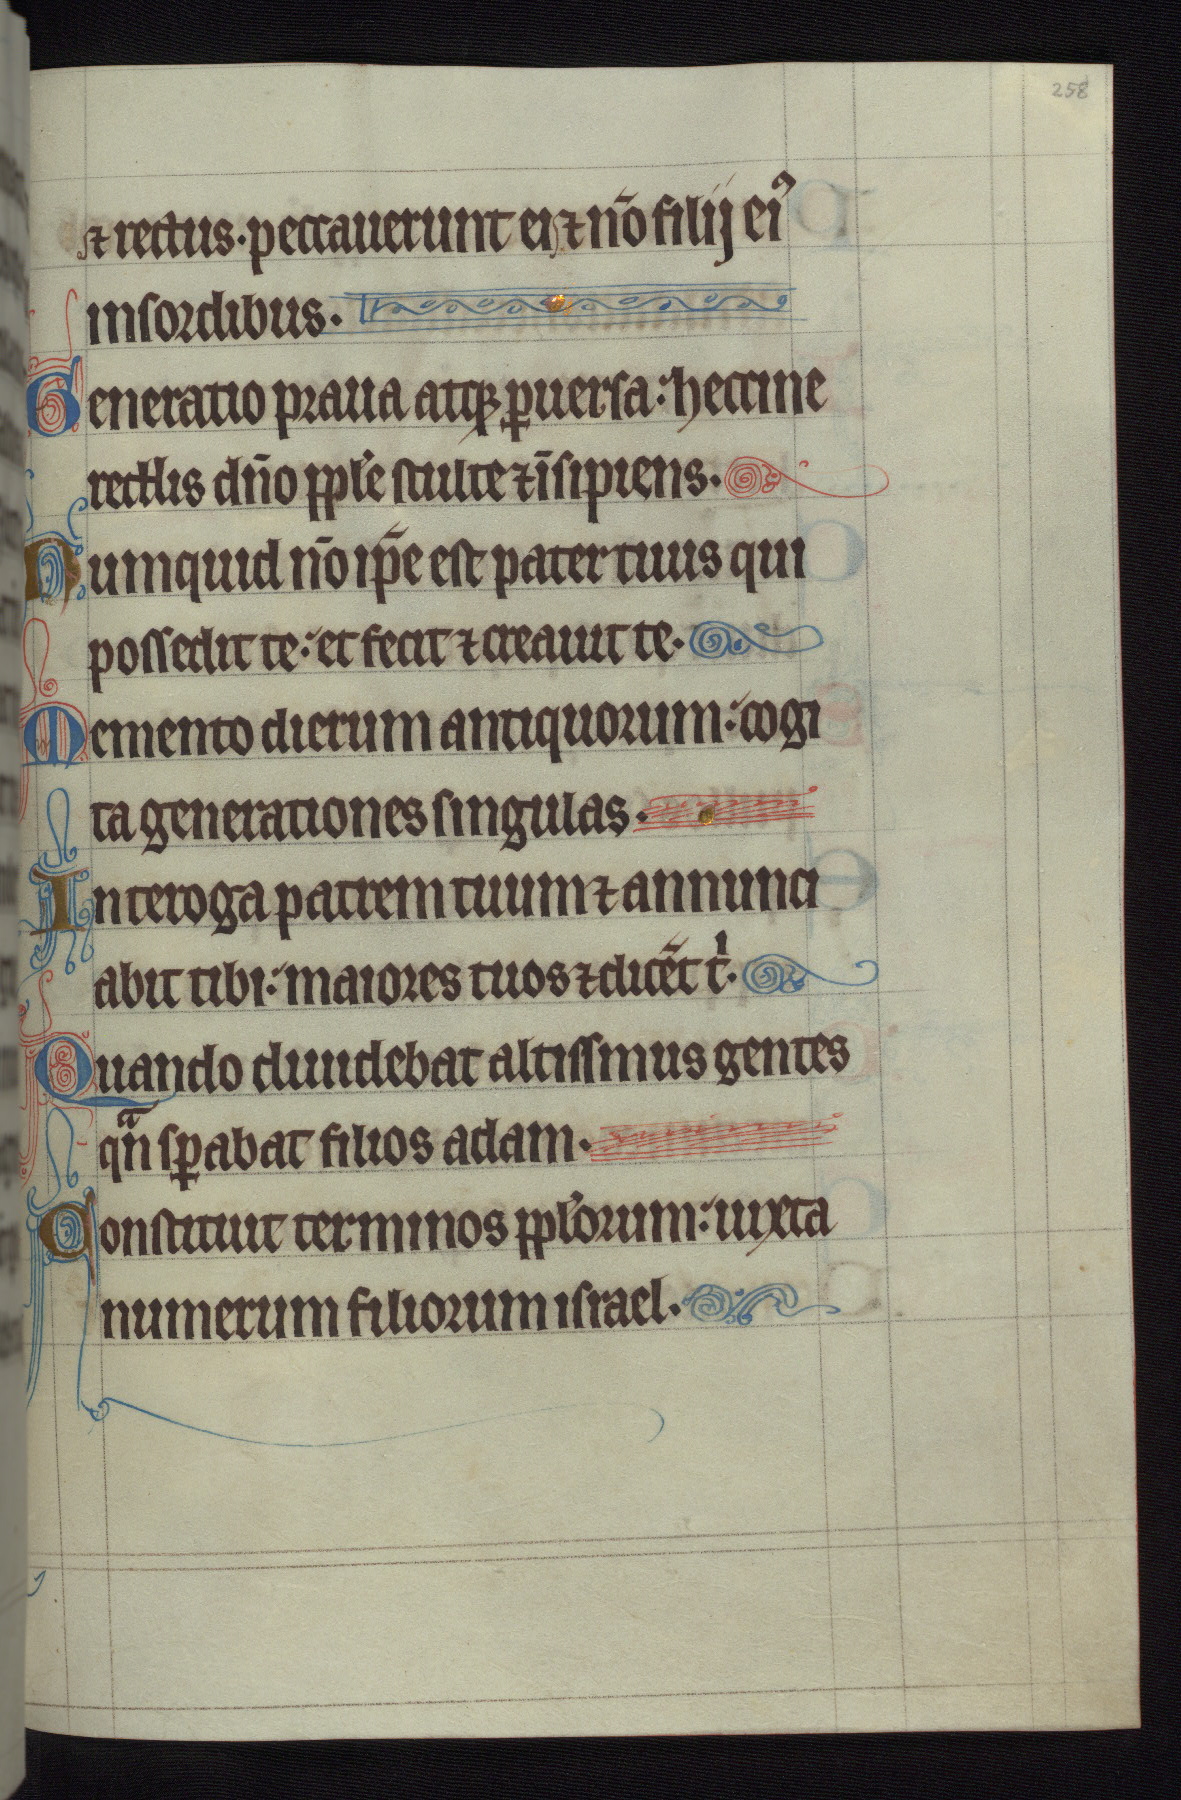 258
⁊ rectus · peccauerunt ei ⁊ nō filij eiꝰ
in sordibus ·
Generatio praua atqꝫ ꝑuersa : heccine
reddis dn̄o pple stulte ⁊ īsipiens ·
Numquid nō ip̄e est pater tuus qui
possedit te : et fecit ⁊ creauit te ·
Memento dierum antiquorum : cogi
ta generationes singulas ·
Interoga patrem tuum ⁊ annunci
abit tibi : maiores tuos ⁊ dicēt tⁱ ·
Quando diuidebat altissimus gentes
qᵃn̄ sꝑabat filios adam ·
Constituit terminos pplorum : iuxta
numerum filiorum israel ·